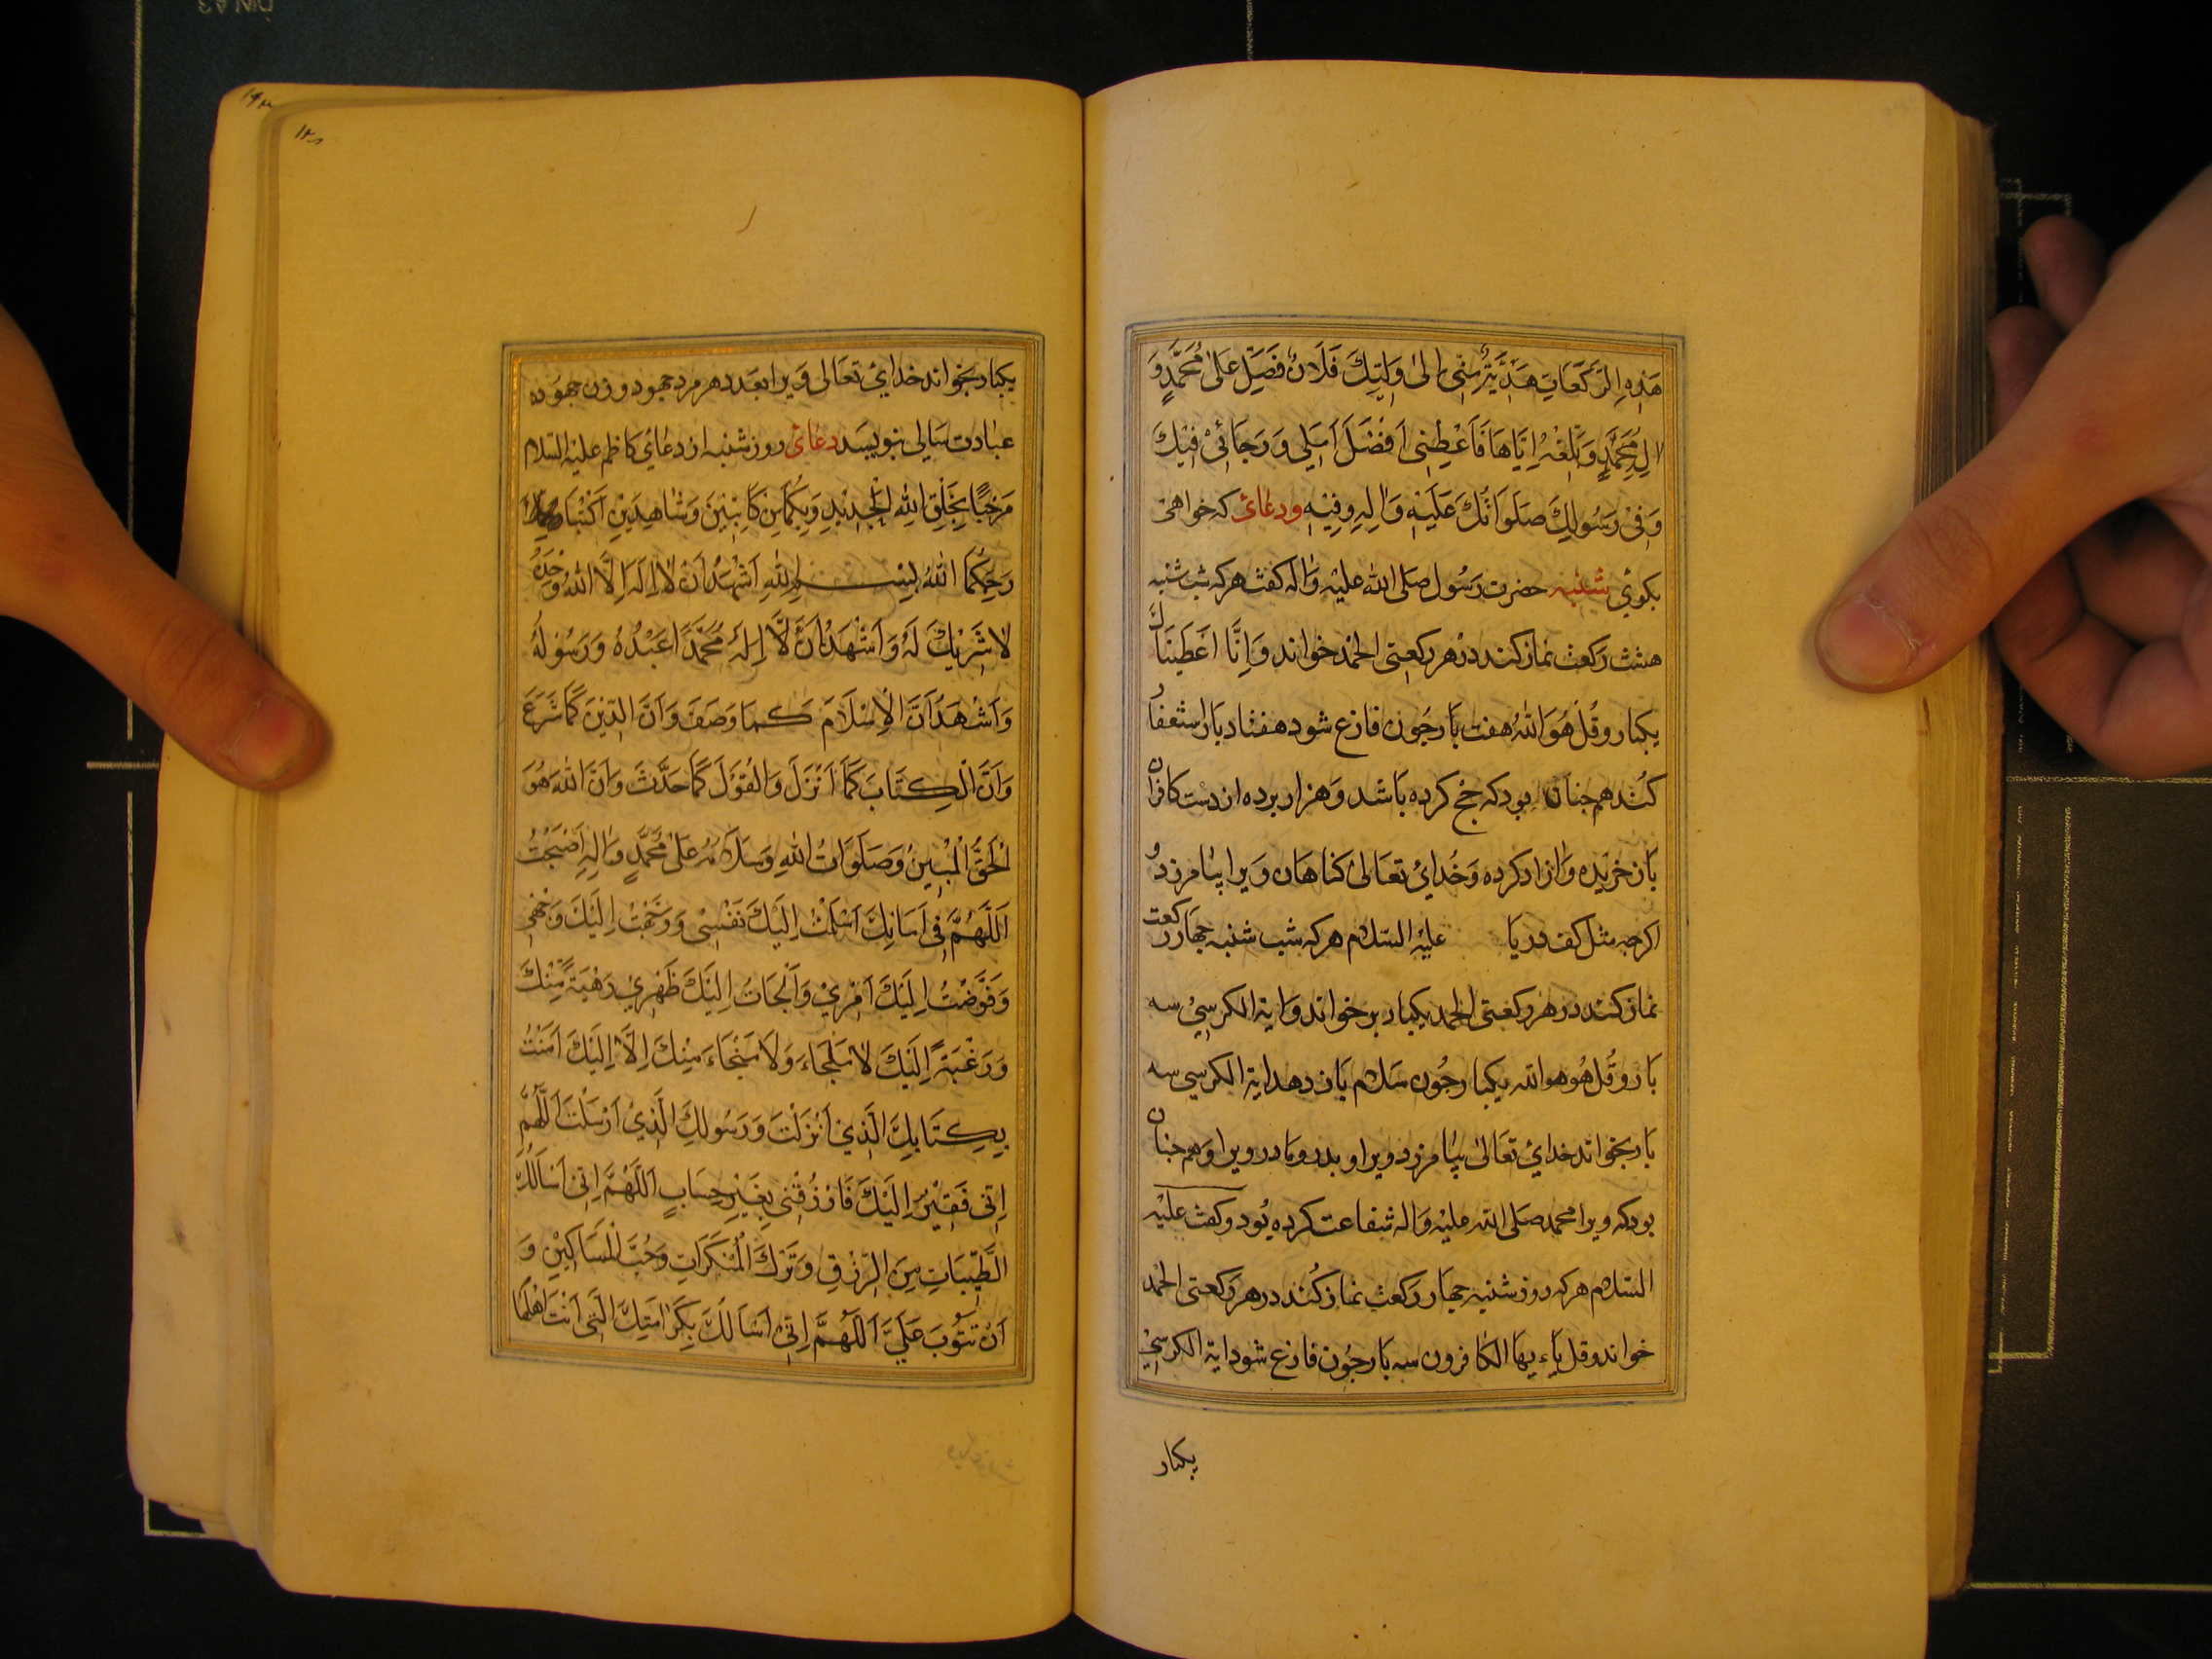 هَذِهِ الرَّكَعَاتِ هَدِيَّةٌ مِنِّي اِلىٰ وَلِيِّكَ فَلَانٌ فَصَلِّ عَلىٰ مُحَمَّدٍ وَ
الِ مُحَمَّدٍ وَبَلِّغْهُ اِيَّاهَا فَاَعْطِنِي اَفْضَلَ اَمَلِي وَرَجَائِيْ فِيْكَ
وَفِيْ رَسُولِكَ صَلَوَاتُكَ عَلَيْهِ وَالِهِ وَفِيْهِ ودعائ كه خواهى
بكوي شنبه حضرت رَسُول صَلى الله عليه وَاله كفت هركه شب شنبه
هشت رَكعت نماز كند در هر ركعتى الحمد خواند وَاِنَّا اَعْطَيْنَاكَ
يكبار وقُل هُوَ الله هفت بَار جُون فارغ شود هفتاد بَار استغفار
كُند هم جنان بود كه حَج كرده بَاشد وَهزار برده از دست كافران
بَاز خريده وَازاد كرده وَخُدايُ تعَالىٰ كناهان وَيرا بيامرزد و
اكرجه مثل كف دريا عليه السلام هركه شب شنبه جهَار ركعت
نماز كند در هر ركعتى الحمد يكبار برخواند وَاية الكرسِيُ سه
بَار وقُل هُو هو الله يكبار وجُون سَلام بَاز دهد اية الكرسي سه
بَار بخواند خدايُ تعَالىٰ بيامرزد ويرا و بدر ومادر ويرا وَهم جنان
بود كه ويرا محمد صَلى الله عليه وَاله شفاعت كرده بُود وكفت عليه
السلام هركه روز شنبه جهَار ركعت نماز كُند در هر ركعتى الحمد
خواند وقل يَاء يهَا الكافرون سه بَار جُون فارغ شود اية الكرسِيُ
يكبار
يكبار بخواند خدايُ تعَالى وَيرا بعَدد هر مرد جهود وزن جهوده
عبادت سَالى بنويسَد دعَائ روز شنبه از دعَايُ كاظم عليه السلام
مَرْحَبًا بِخَلْقِ اللهِ الْجَدِيْدِ وَبِكُمَا مِنْ كَاتِبَيْنَ وَشَاهِدَيْنِ اَكْتُبَا
رَحِمَكُمَا اللهُ بِسْمِ اللهِ اَشْهَدُ اَنْ لَا اِلَهَ اِلَّا اللهُ وَحْدَهُ
لَا شَرِيْكَ لَهُ وَاَشْهَدُ اَنْ لَّا اِلهَ مُحَمَّدًا عَبْدُهُ وَرَسُوْلُهُ
وَاَشْهَدُ اَنَّ الْاِسْلَامَ كَمَا وَصَفَ وَاَنَّ الدِّيْنَ كَمَا شَرَعَ
وَاَنَّ الْكِتَابَ كَمَا اَنْزَلَ وَالْقَوْلَ كَمَا حَدَّثَ وَاَنَّ اللهَ هُوَ
الْحَقُّ الْمُبِيْنُ وَصَلَوَاتُ اللهِ وَسَلَامُهُ عَلىٰ مُحَمَّدٍ وَالِهِ اَصْبَحْتُ
اَللّٰهُمَّ فِي اَمَانِكَ اَسْلَمْتُ اِلَيْكَ نَفْسِى وَوَجَّهْتُ اِلَيْكَ وَجْهِي
وَفَوَّضْتُ اِلَيْكَ اَمْرِيْ وَاَلْجَاتُ اِلَيْكَ ظَهْرِيْ رَهْبَةً مِّنْكَ
وَرَغْبَةً اِلَيْكَ لَا مَلْجَاءَ وَلَا مَنْجَاءَ مِنْكَ اِلَّا اِلَيْكَ اٰمَنْتُ
بِكِتَابِكَ الَّذِيْ اَنْزَلْتَ وَرَسُولِكَ الَّذِيْ اَرْسَلْتَ اَللّٰهُمَّ
اِنِّى فَقِيْرٌ اِلَيْكَ فَارْزُقْنِى بِغَيْرِ حِسَابٍ اَللّٰهُمَّ اِنِّى اَسْاَلُكَ
الطَّيِّبَاتِ مِنَ الرِّزْقِ وَتَرْكَ الْمُنْكَرَاتِ وَحُبَّ الْمَسَاكِيْنِ وَ
اَنْ تَتُوْبَ عَلَيَّ اَللّٰهُمَّ اِنِّيْ اَسْاَلُكَ بِكَرَامَتِكَ الَّتِى اَنْتَ اَهْلُهَا